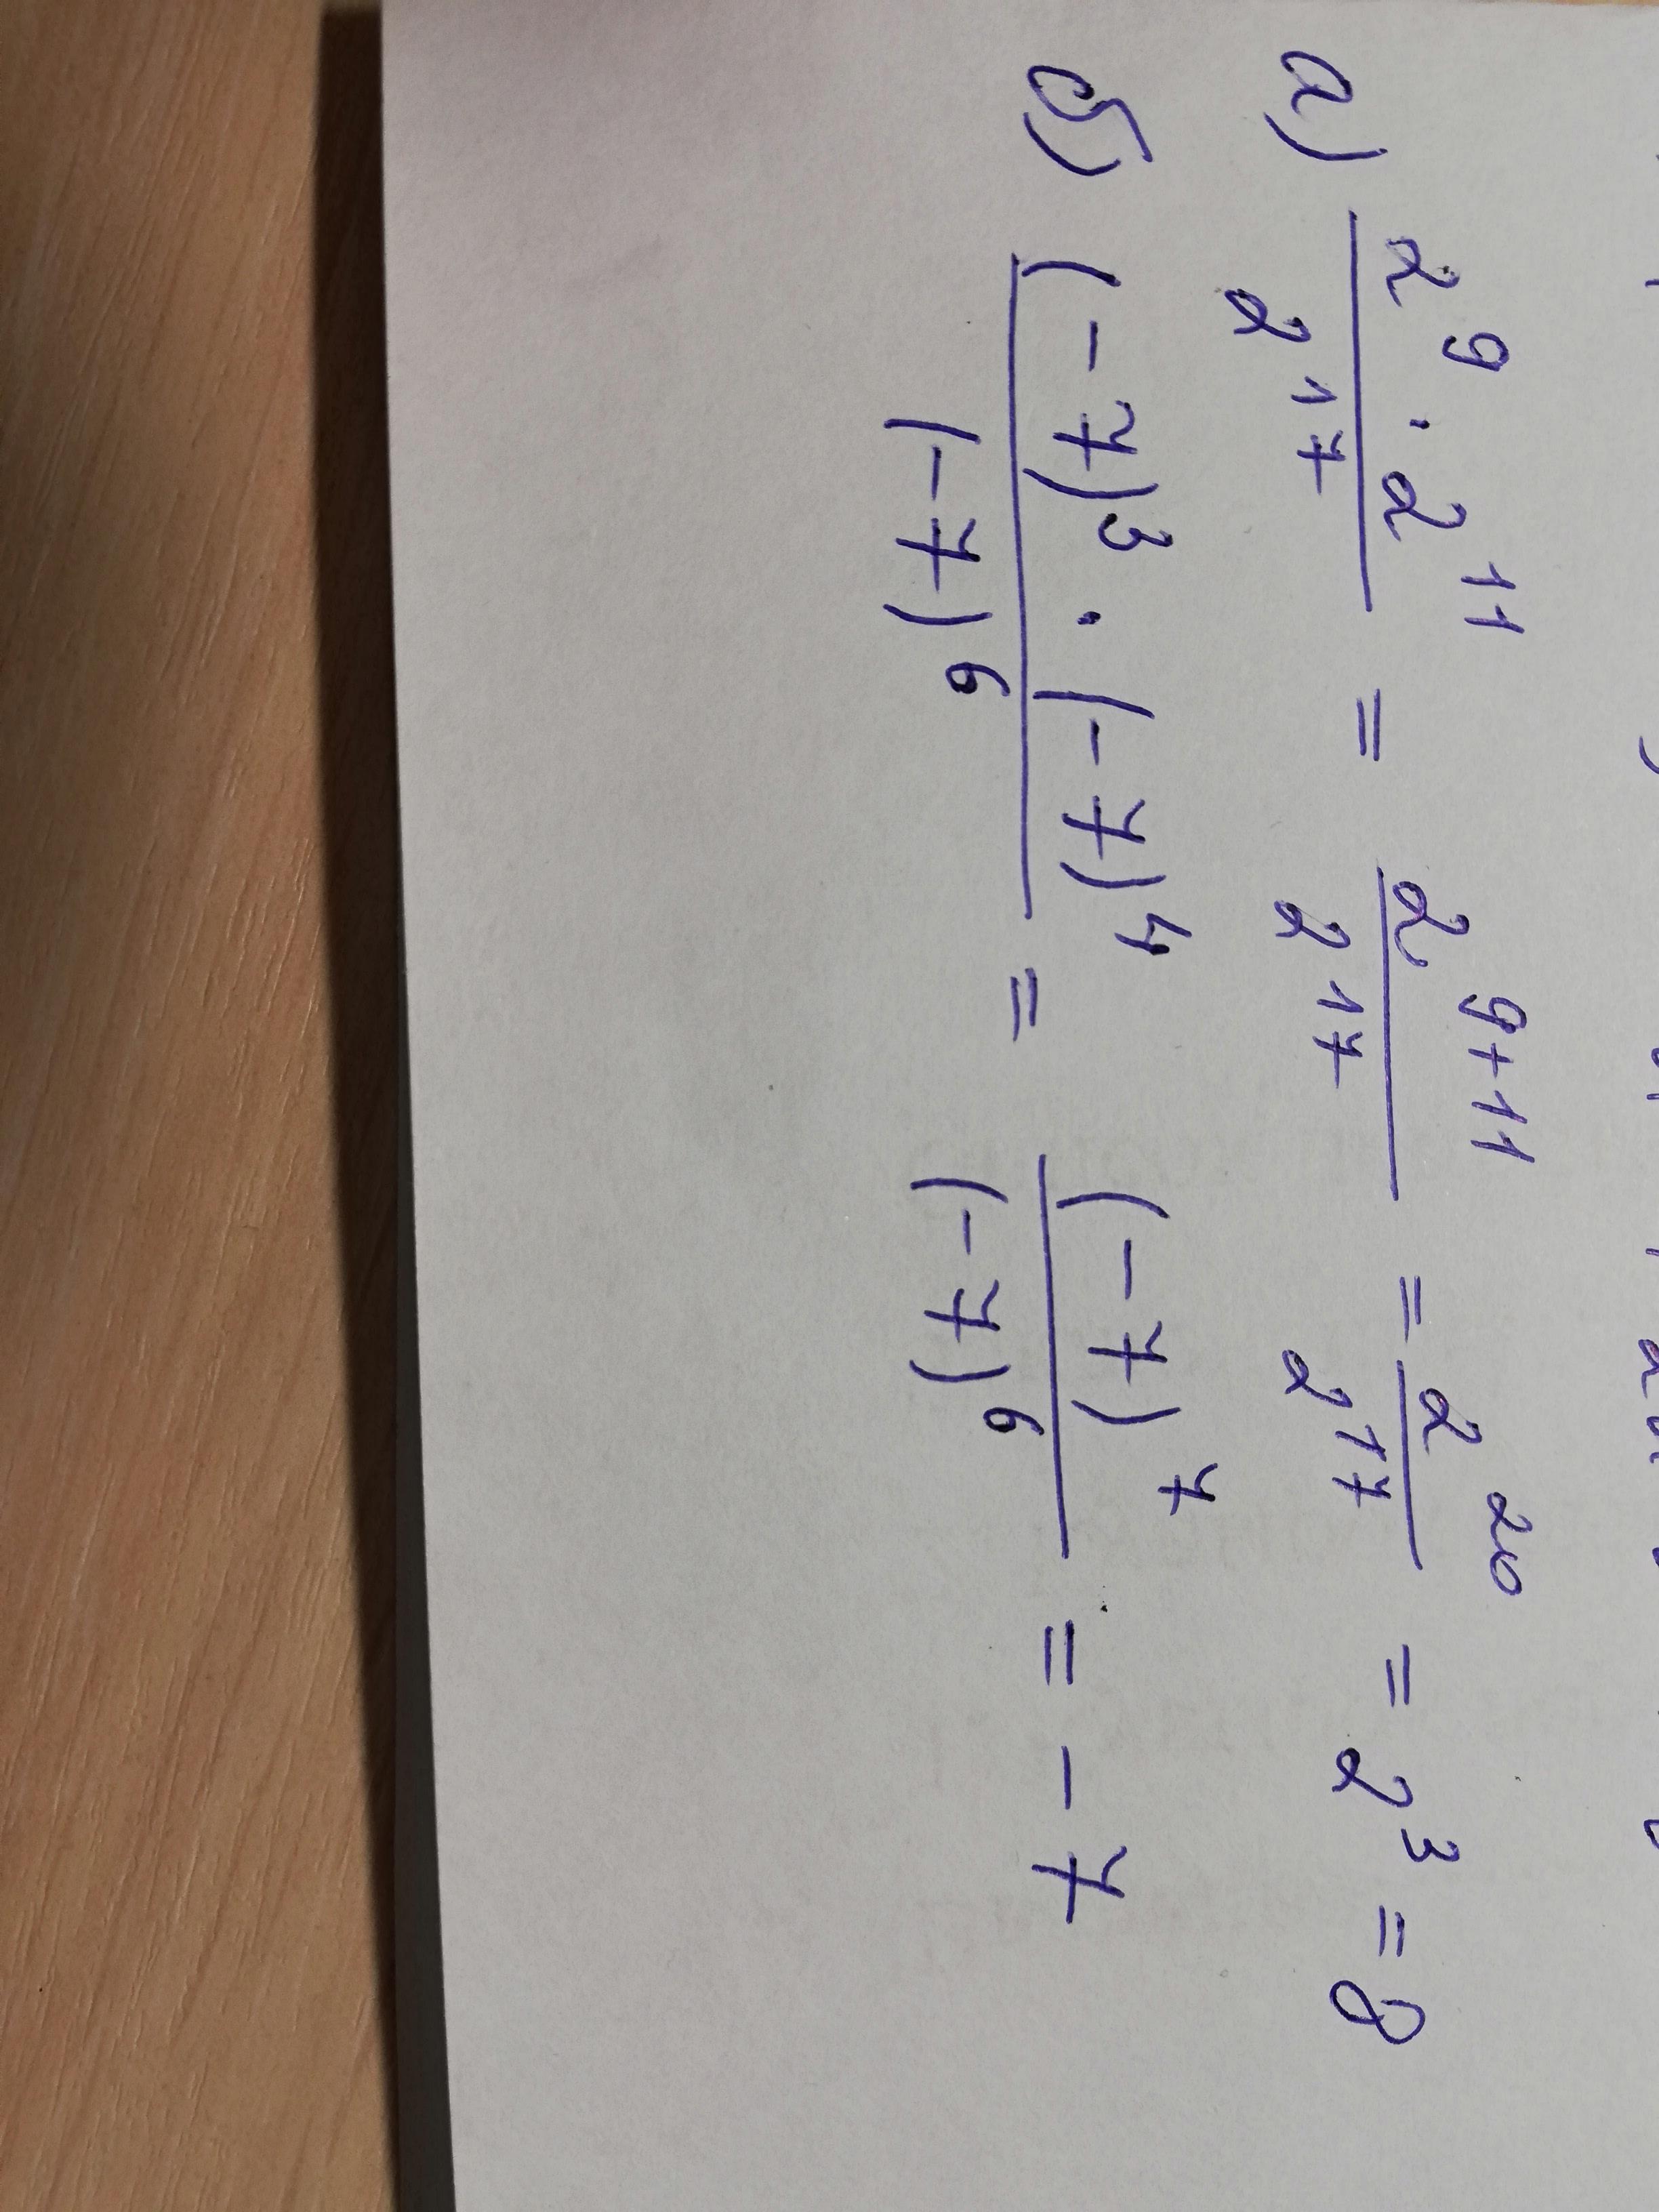 а) (2^9 · 2^11) / 2^17 = 2^(9+11) / 2^17 = 2^20 / 2^17 = 2^3 = 8
б) ((-7)^3 · (-7)^4) / (-7)^6 = (-7)^7 / (-7)^6 = -7